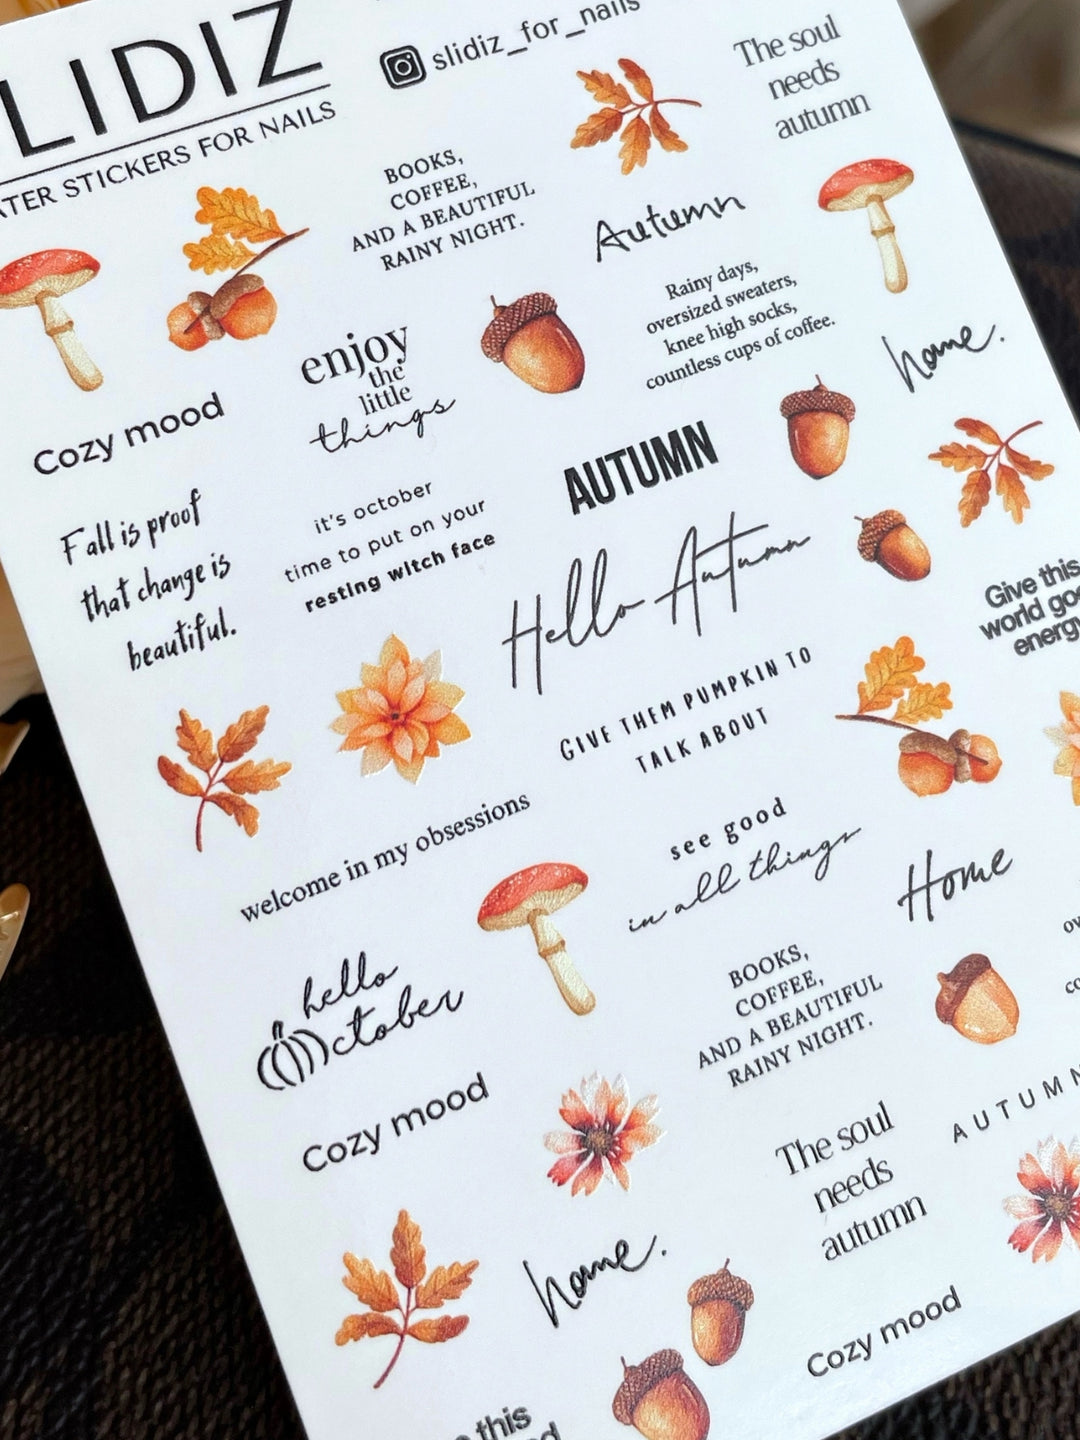 LIDIZ
slidiz_for_nails
TER STICKERS FOR NAILS
The soul
needs
autumn
BOOKS,
COFFEE,
AND A BEAUTIFUL
RAINY NIGHT.
Autumn
Rainy days,
oversized sweaters,
knee high socks,
countless cups of coffee.
home.
enjoy
the
little
things
Cozy mood
AUTUMN
Fall is proof
that change is
beautiful.
it's october
time to put on your
resting witch face
Hello Autumn
Give this
world goo
energy
GIVE THEM PUMPKIN TO
TALK ABOUT
welcome in my obsessions
see good
in all things
Home
hello
October
BOOKS,
COFFEE,
AND A BEAUTIFUL
RAINY NIGHT.
ov
co
Cozy mood
AUTUMN
The soul
needs
autumn
home.
Cozy mood
this